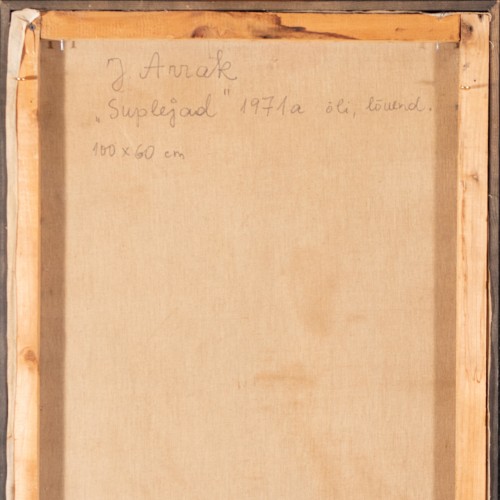 J Arrak
„Suplejad" 1971a õli, lõuend.
100 x 60 cm